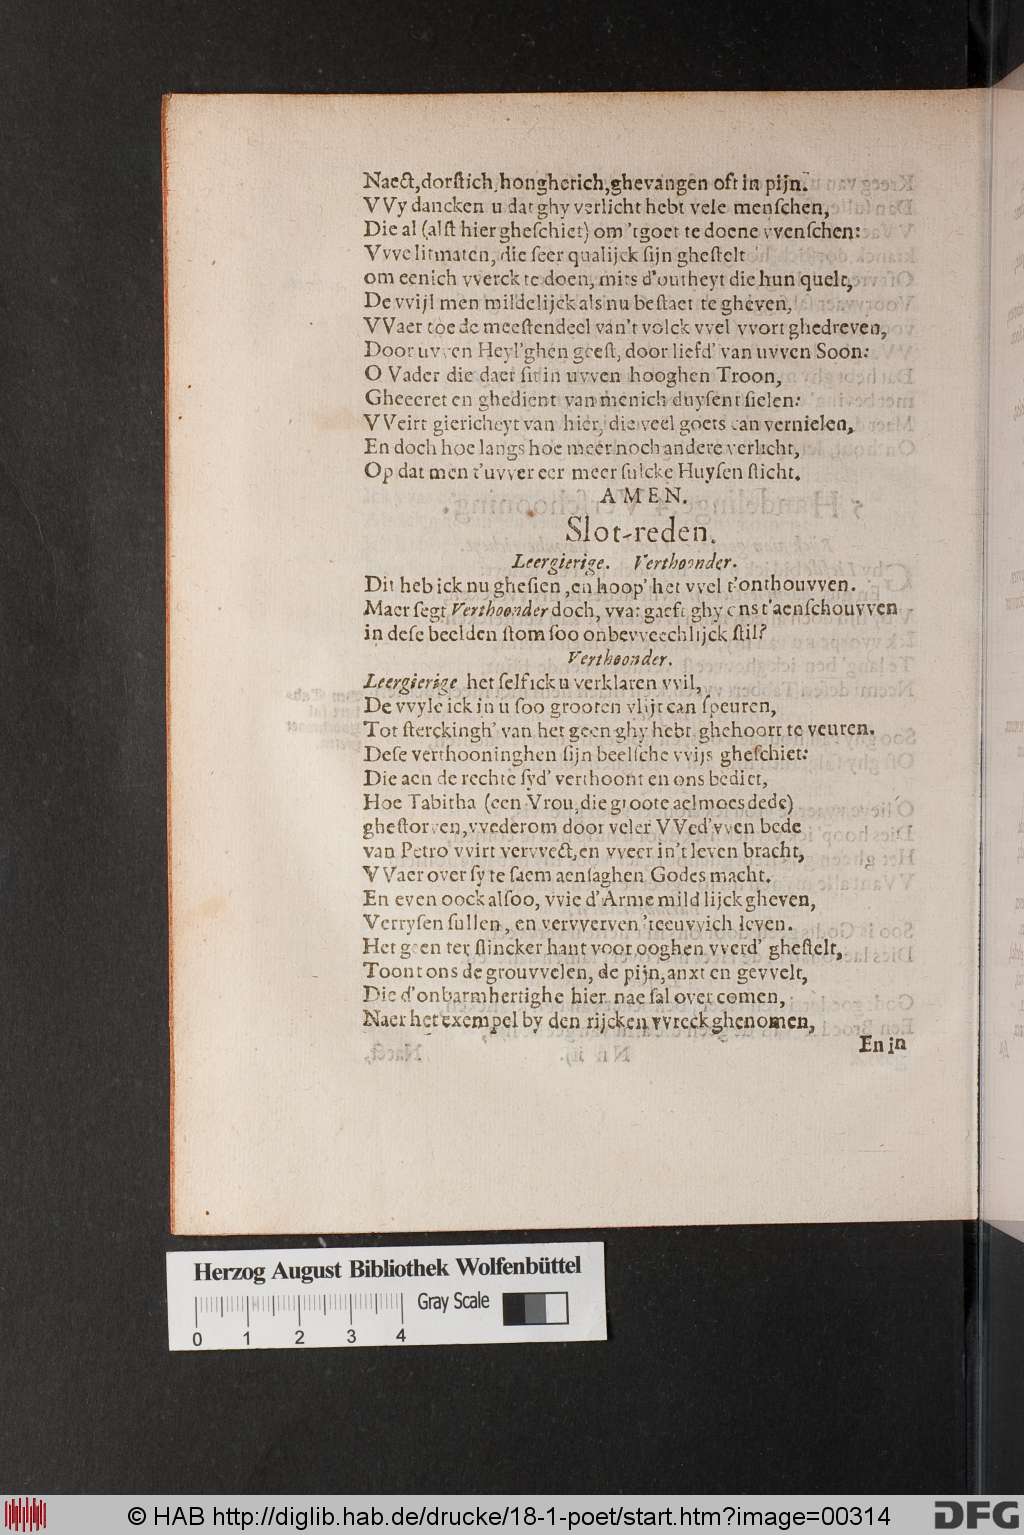 Naect, dorſtich, hongherich, ghevangen oft in pijn.
VVy dancken u dat ghy verlicht hebt vele menſchen,
Die al (alſt hier gheſchiet) om 'tgoet te doene vvenſchen:
Vvve litmaten, die ſeer qualijck ſijn gheſtelt
om eenich vverck te doen, mits d'outheyt die hun quelt,
De vvijl men mildelijck als nu beſtaet te gheven,
VVaer toe de meeſtendeel van't volck vvel vvort ghedreven,
Door uvven Heyl'ghen geeſt, door liefd' van uvven Soon:
O Vader die daer ſit in uvven hooghen Troon,
Gheeeret en ghedient van menich duyſent ſielen:
VVeirt giericheyt van hier, die veel goets can vernielen,
En doch hoe langs hoe meer noch andere verlicht,
Op dat men t'uvver eer meer ſulcke Huyſen ſticht.
AMEN.
Slot-reden.
Leergierige. Verthoonder.
Dit heb ick nu gheſien, en hoop' het vvel t'onthouvven.
Maer ſegt Verthoonder doch, vvat gaeft ghy ons t'aenſchouvven
in deſe beelden ſtom ſoo onbevveechlijck ſtil?
Verthoonder.
Leergierige het ſelf ick u verklaren vvil,
De vvyle ick in u ſoo grooten vlijt can ſpeuren,
Tot ſterckingh' van het geen ghy hebt ghehoort te veuren.
Deſe verthooninghen ſijn beelſche vvijs gheſchiet:
Die aen de rechte ſyd' verthoont en ons bediet,
Hoe Tabitha (een Vrou, die groote aelmoes dede)
gheſtorven, vvederom door veler VVed'vven bede
van Petro vvirt vervvect, en vveer in't leven bracht,
VVaer over ſy te ſaem aenſaghen Godes macht.
En even oock alſoo, vvie d'Arme mildlijck gheven,
Verryſen ſullen, en vervverven 'teeuvvich leven.
Het geen ter ſlincker hant voor ooghen vverd' gheſtelt,
Toont ons de grouvvelen, de pijn, anxt en gevvelt,
Die d'onbarmhertighe hier nae ſal over comen,
Naer het exempel by den rijcken vvreck ghenomen,
En in
Herzog August Bibliothek Wolfenbüttel
Gray Scale
0 1 2 3 4
© HAB http://diglib.hab.de/drucke/18-1-poet/start.htm?image=00314
DFG